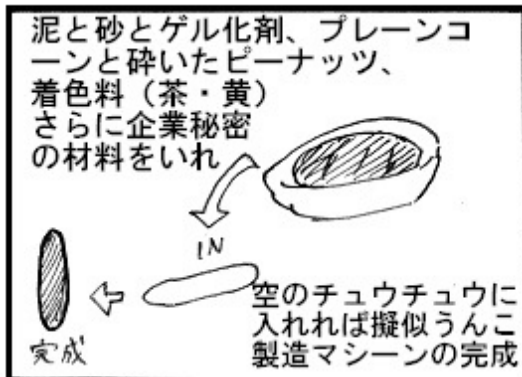 泥と砂とゲル化剤、プレーンコ
ーンと砕いたピーナッツ、
着色料（茶・黄）
さらに企業秘密
の材料をいれ
IN
空のチュウチュウに
入れれば擬似うんこ
製造マシーンの完成
完成